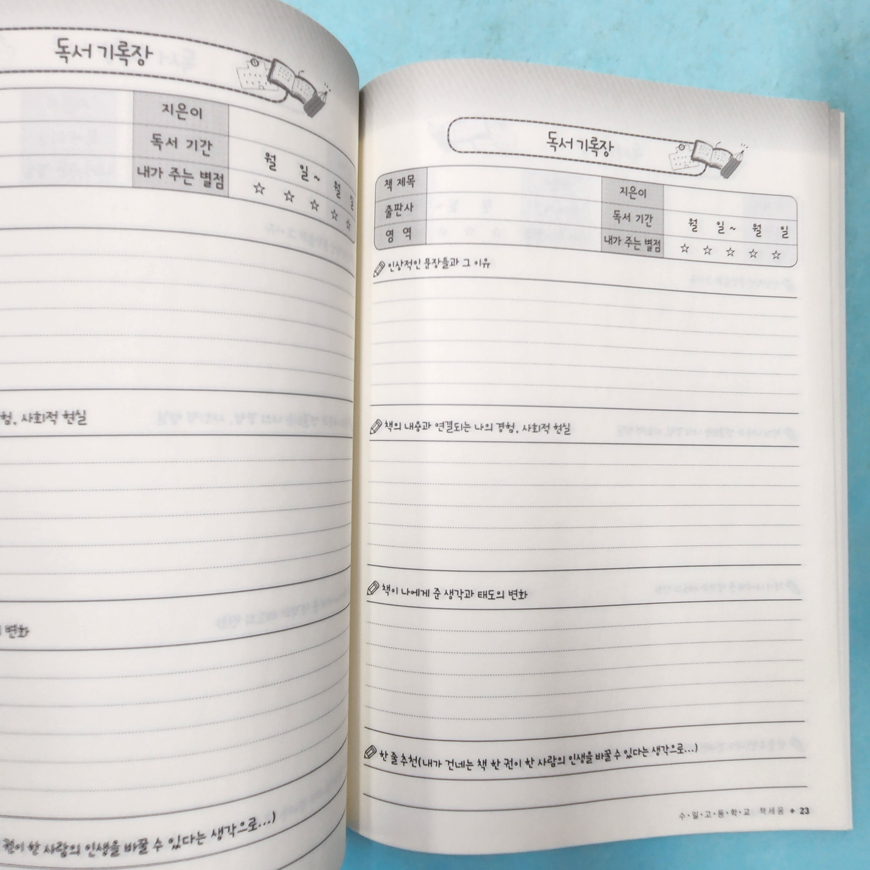 독서 기록장
지은이
독서 기간 월 일 ~ 월 일
내가 주는 별점 ☆ ☆ ☆ ☆ ☆
험, 사회적 현실
변화
권이 한 사람의 인생을 바꿀 수 있다는 생각으로...)
독서 기록장
책 제목 지은이
출판사 독서 기간 월 일 ~ 월 일
영 역 내가 주는 별점 ☆ ☆ ☆ ☆ ☆
인상적인 문장들과 그 이유
책의 내용과 연결되는 나의 경험, 사회적 현실
책이 나에게 준 생각과 태도의 변화
한 줄 추천(내가 건네는 책 한 권이 한 사람의 인생을 바꿀 수 있다는 생각으로...)
수·일·고·등·학·교 책세움 + 23